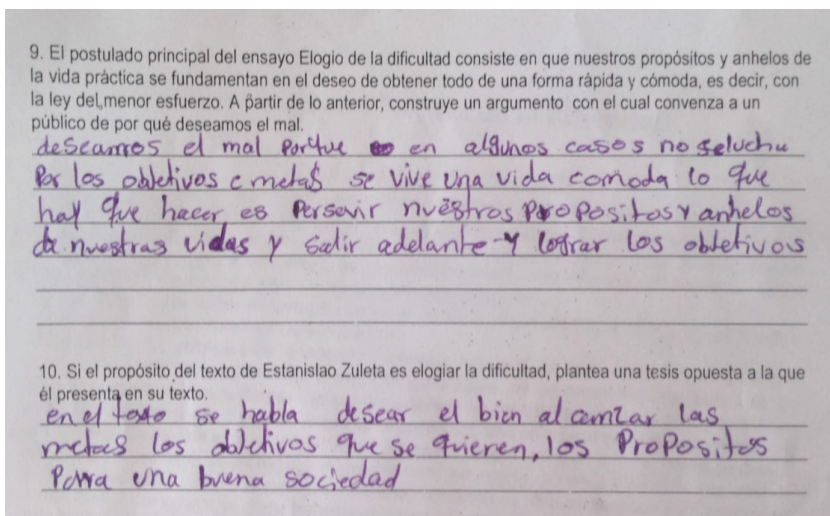 9. El postulado principal del ensayo Elogio de la dificultad consiste en que nuestros propósitos y anhelos de
la vida práctica se fundamentan en el deseo de obtener todo de una forma rápida y cómoda, es decir, con
la ley del menor esfuerzo. A partir de lo anterior, construye un argumento con el cual convenza a un
público de por qué deseamos el mal.
deseamos el mal porque en algunos casos no se lucha
Por los objetivos e metas se vive una vida comoda lo que
hay que hacer es Perseuir nuestros Propositos y anhelos
de nuestras vidas y salir adelante y lograr los objetivos
10. Si el propósito del texto de Estanislao Zuleta es elogiar la dificultad, plantea una tesis opuesta a la que
él presenta en su texto.
en el texto se habla desear el bien alcanzar las
metas los objetivos que se quieren, los Propositos
Para una buena sociedad